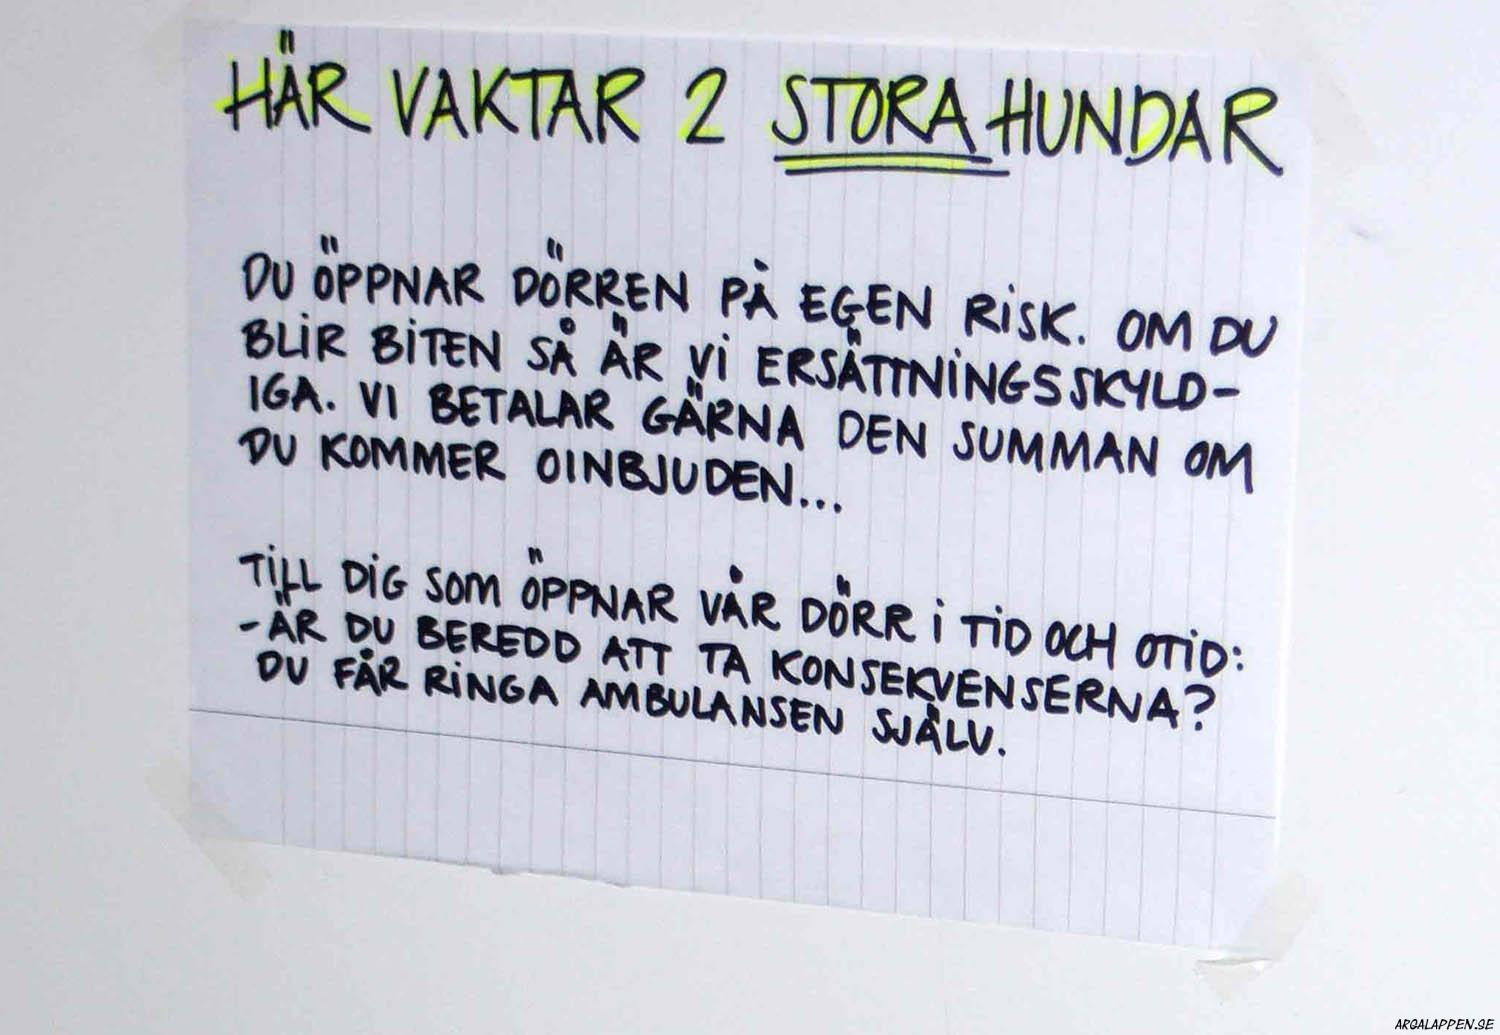 HÄR VAKTAR 2 STORA HUNDAR
DU ÖPPNAR DÖRREN PÅ EGEN RISK. OM DU
BLIR BITEN SÅ ÄR VI ERSÄTTNINGSSKYLD-
IGA. VI BETALAR GÄRNA DEN SUMMAN OM
DU KOMMER OINBJUDEN...
TILL DIG SOM ÖPPNAR VÅR DÖRR I TID OCH OTID:
-ÄR DU BEREDD ATT TA KONSEKVENSERNA?
DU FÅR RINGA AMBULANSEN SJÄLV.
ARGALAPPEN.SE